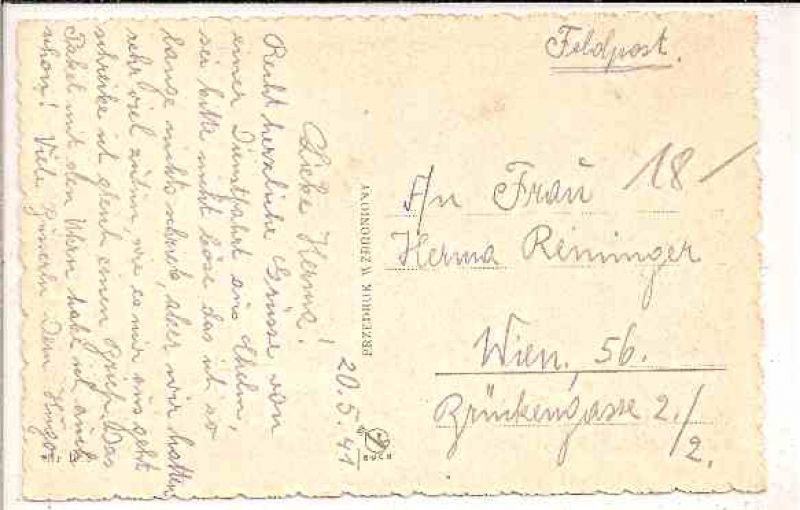 Feldpost.
18/
An Frau
Herma Reininger
Wien, 56.
Brückengasse 2./2.
PRZEDRUK WZBRONIONY
RUCH
20.5.41
Liebe Herma!
Recht herzliche Grüsse von
einer Dienstfahrt aus Chelm,
sei bitte nicht böse das ich so
lange nichts schrieb, aber wir hatten
sehr viel zu tun, wie es mir aus geht
schreibe ich gleich einen Brief. Das
Paket mit den habe ich auch
schon! Viele Dein Hugo